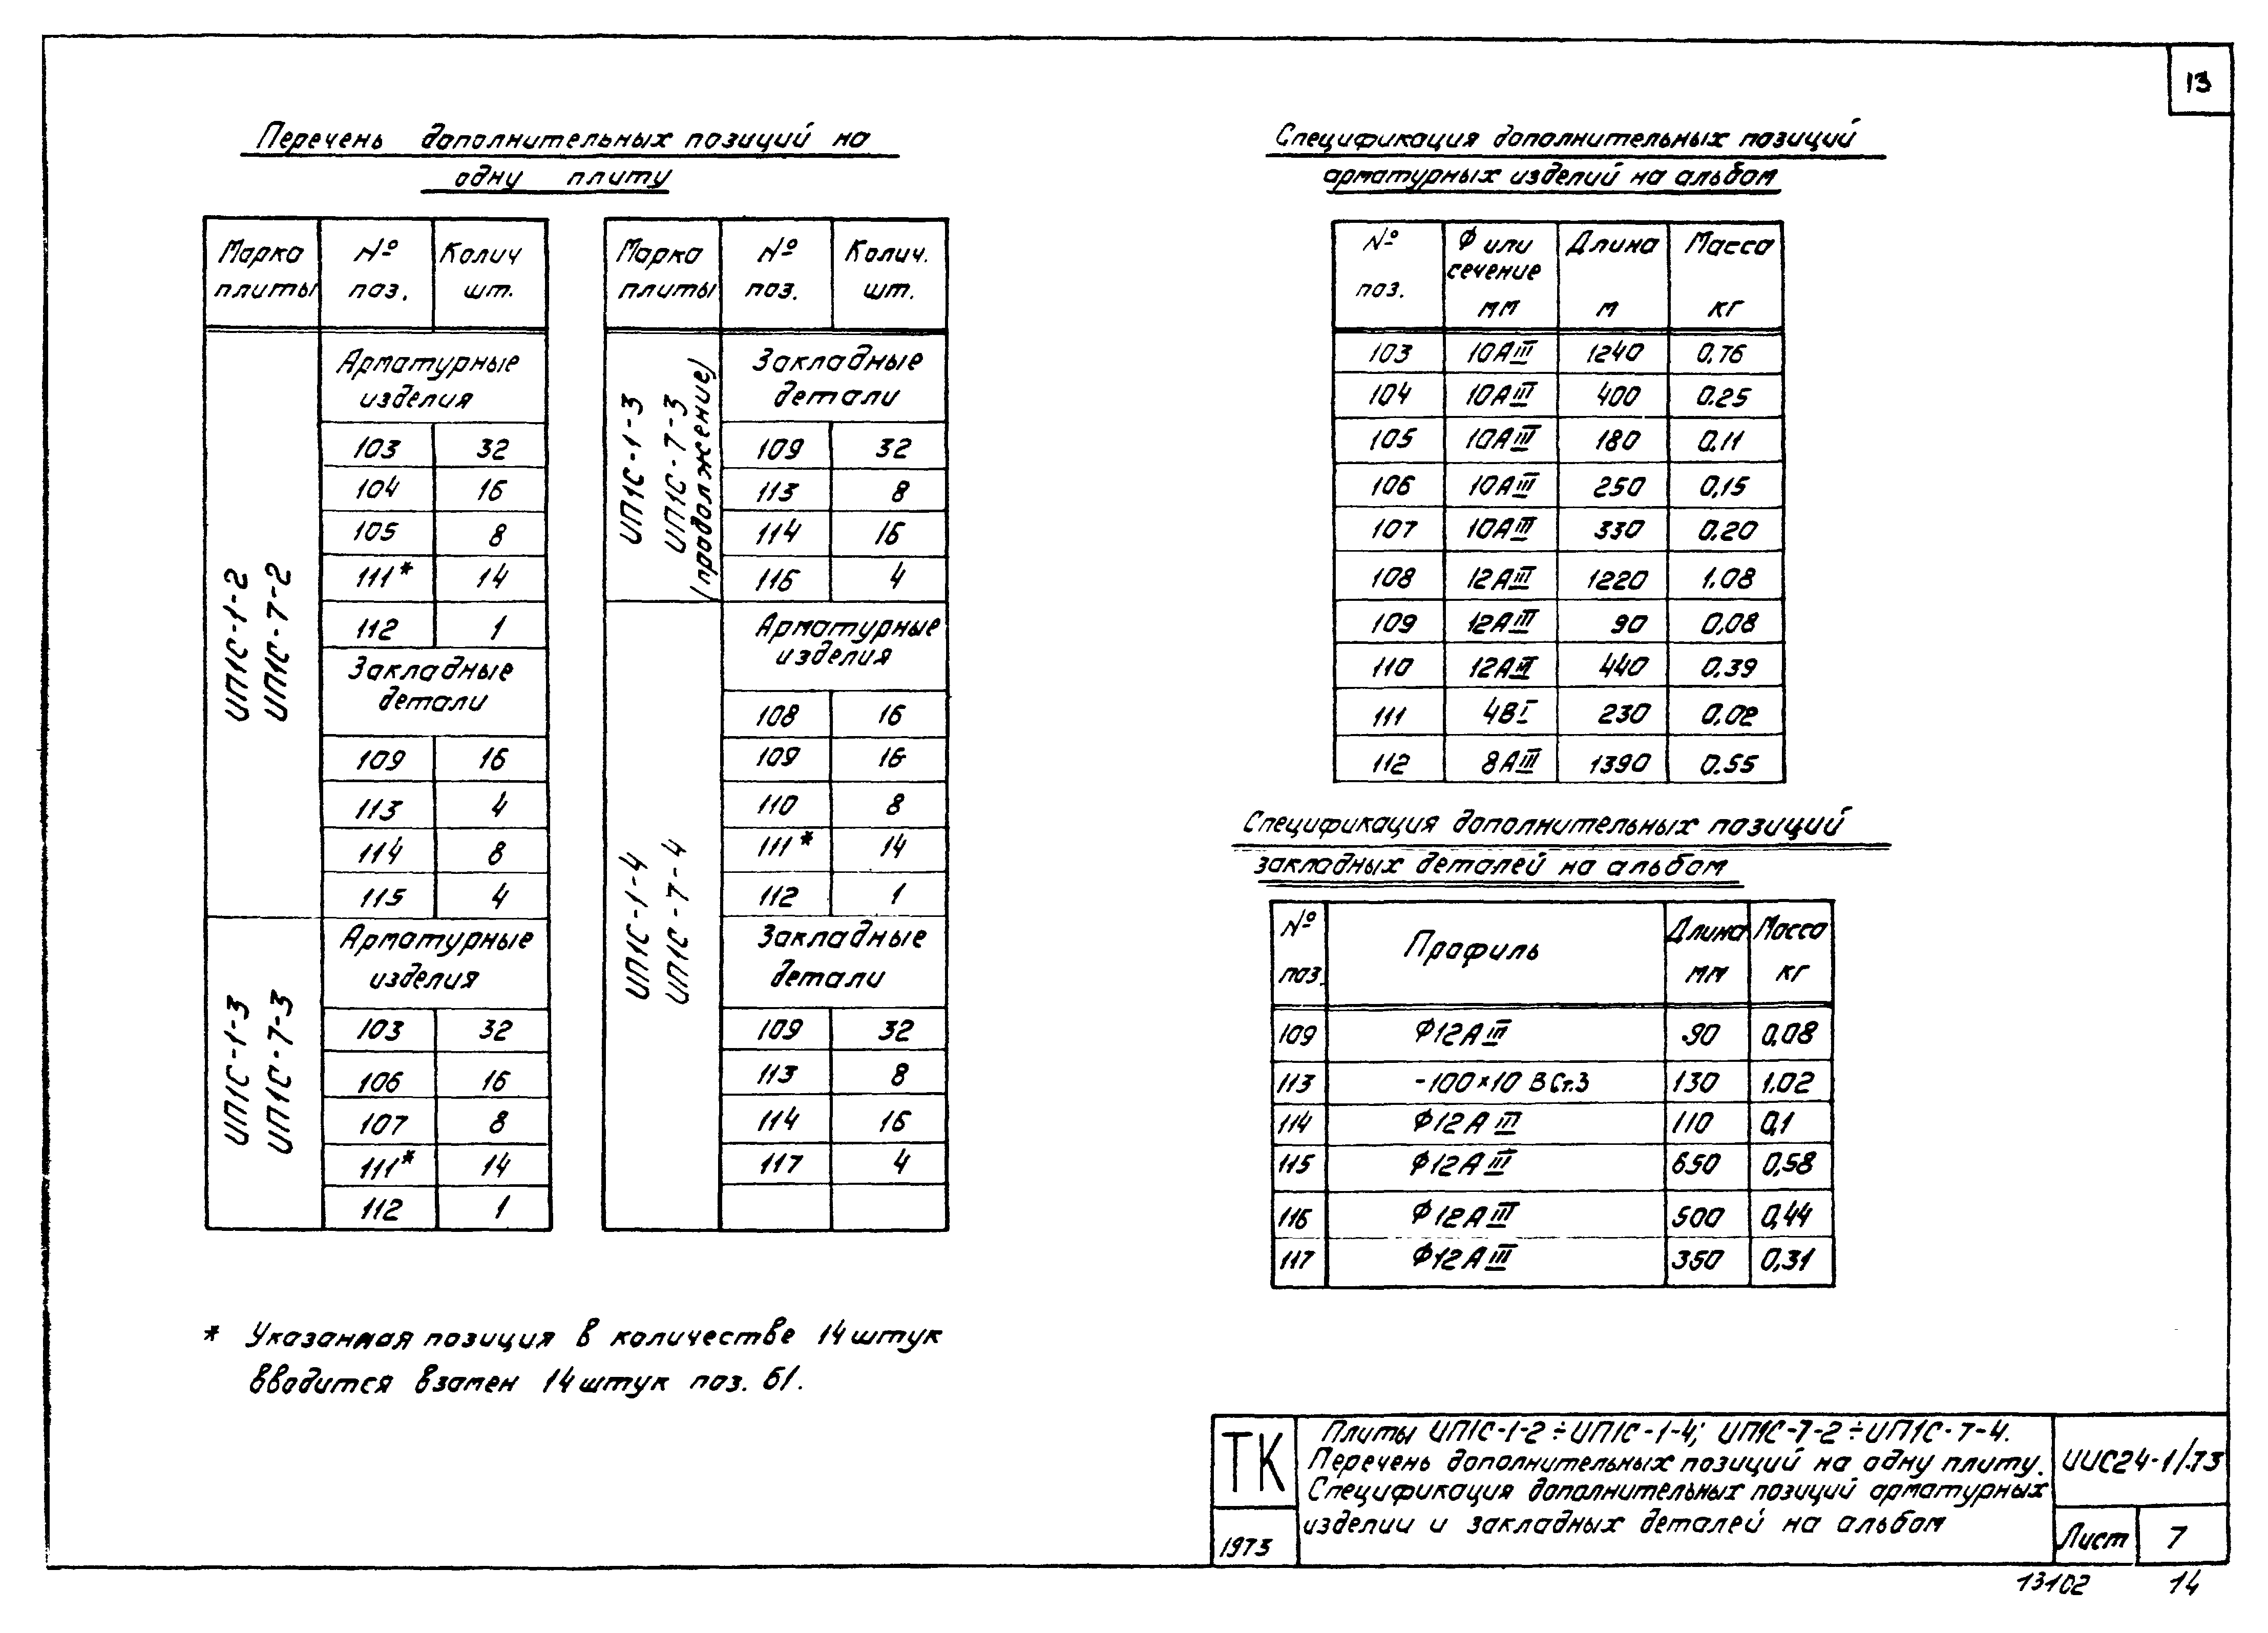 13
Перечень дополнительных позиций на
одну плиту
Марка плиты № поз. Колич шт.
ИП1С-1-2
ИП1С-7-2
Арматурные
изделия
103 32
104 16
105 8
111* 14
112 1
Закладные
детали
109 16
113 4
114 8
115 4
ИП1С-1-3
ИП1С-7-3
Арматурные
изделия
103 32
106 16
107 8
111* 14
112 1
Марка плиты № поз. Колич. шт.
ИП1С-1-3
ИП1С-7-3
(продолжение)
Закладные
детали
109 32
113 8
114 16
116 4
ИП1С-1-4
ИП1С-7-4
Арматурные
изделия
108 16
109 16
110 8
111* 14
112 1
Закладные
детали
109 32
113 8
114 16
117 4
* Указанная позиция в количестве 14 штук
вводится взамен 14 штук поз. 61.
Спецификация дополнительных позиций
арматурных изделий на альбом
№ поз. Ф или сечение мм Длина м Масса кг
103 10АIII 1240 0,76
104 10АIII 400 0.25
105 10АIII 180 0,11
106 10АIII 250 0,15
107 10АIII 330 0.20
108 12АIII 1220 1.08
109 12АIII 90 0,08
110 12АIII 440 0.39
111 4ВI 230 0.02
112 8АIII 1390 0.55
Спецификация дополнительных позиций
закладных деталей на альбом
№ поз. Профиль Длина мм Масса кг
109 Ф12АIII 90 0,08
113 -100×10 В Ст.3 130 1.02
114 Ф12АIII 110 0,1
115 Ф12АIII 650 0,58
116 Ф12АIII 500 0,44
117 Ф12АIII 350 0,31
ТК
1973
Плиты ИП1С-1-2÷ИП1С-1-4; ИП1С-7-2÷ИП1С-7-4.
Перечень дополнительных позиций на одну плиту.
Спецификация дополнительных позиций арматурных
изделии и закладных деталей на альбом
ИИС24-1/73
Лист 7
13102 14